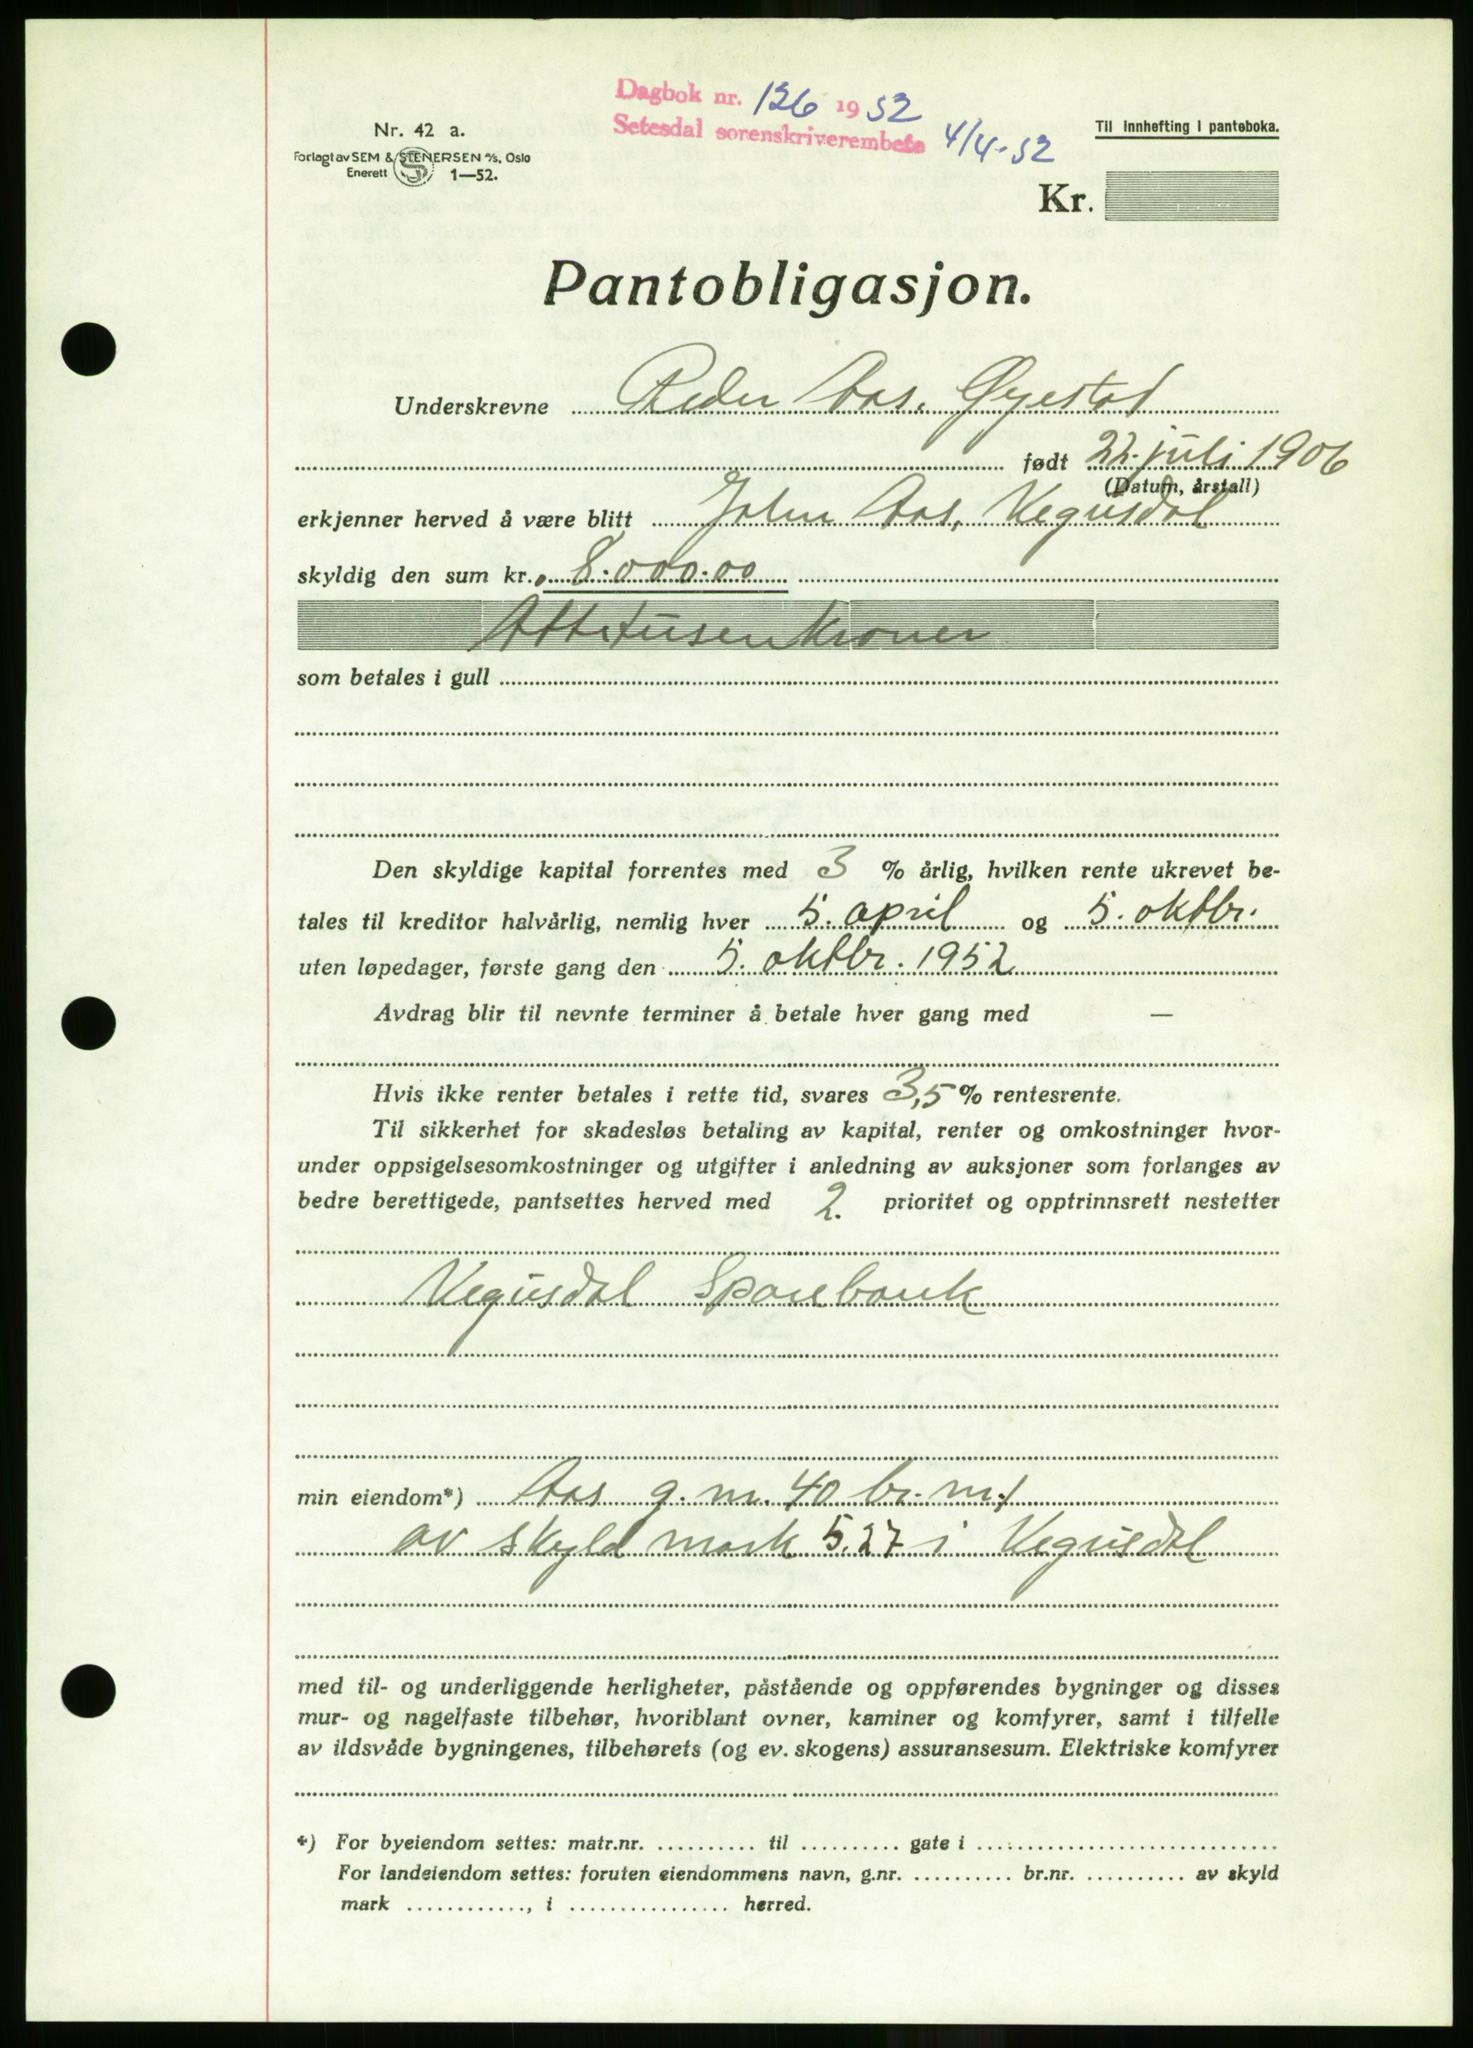 Dagbok nr. 126 1952
Setesdal sorenskriverembete 4/4-52
Nr. 42 a.
Forlagt av SEM & STENERSEN A/S, Oslo
Enerett 1—52.
Til innhefting i panteboka.
Kr.
Pantobligasjon.
Underskrevne Peder Aas, Øyestad
født 22. juli 1906
(Datum, årstall)
erkjenner herved å være blitt John Aas, Vegusdal
skyldig den sum kr. 8.000.00
Åttetusen kroner
som betales i gull
Den skyldige kapital forrentes med 3 % årlig, hvilken rente ukrevet be-
tales til kreditor halvårlig, nemlig hver 5. april og 5. oktbr.
uten løpedager, første gang den 5. oktbr. 1952
Avdrag blir til nevnte terminer å betale hver gang med —
Hvis ikke renter betales i rette tid, svares 3,5 % rentesrente.
Til sikkerhet for skadesløs betaling av kapital, renter og omkostninger hvor-
under oppsigelsesomkostninger og utgifter i anledning av auksjoner som forlanges av
bedre berettigede, pantsettes herved med 2. prioritet og opptrinnsrett nestetter
Vegusdal Sparebank
min eiendom*) Aas g.nr. 40 br.nr. 1
av skyld mark 5.27 i Vegusdal
med til- og underliggende herligheter, påstående og oppførendes bygninger og disses
mur- og nagelfaste tilbehør, hvoriblant ovner, kaminer og komfyrer, samt i tilfelle
av ildsvåde bygningenes, tilbehørets (og ev. skogens) assuransesum. Elektriske komfyrer
*) For byeiendom settes: matr.nr. .......... til .......... gate i ..............................
For landeiendom settes: foruten eiendommens navn, g.nr. .......... br.nr. .......... av skyld
mark ............, i ................ herred.